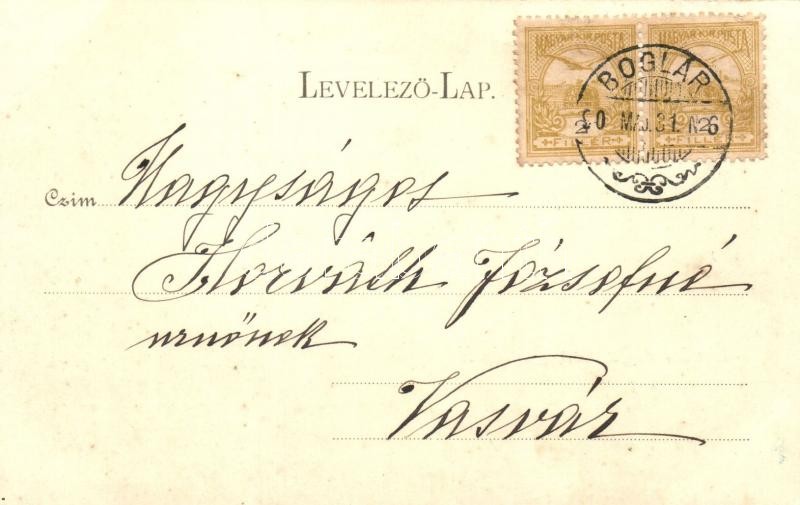 MAGYAR KIR. POSTA MAGYAR KIR. POSTA
2 FILLÉR 2 FILLÉR
BOGLÁR
MAJ. 31. N
LEVELEZŐ-LAP.
Czim Nagyságos
Horváth Józsefné
urnőnek
Vasvár